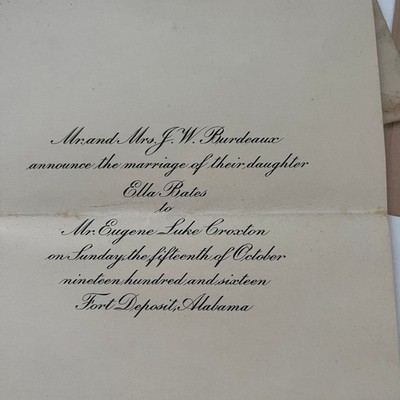 Mr. and Mrs. J. W. Burdeaux
announce the marriage of their daughter
Ella Bates
to
Mr. Eugene Luke Croxton
on Sunday, the fifteenth of October
nineteen hundred and sixteen
Fort Deposit, Alabama